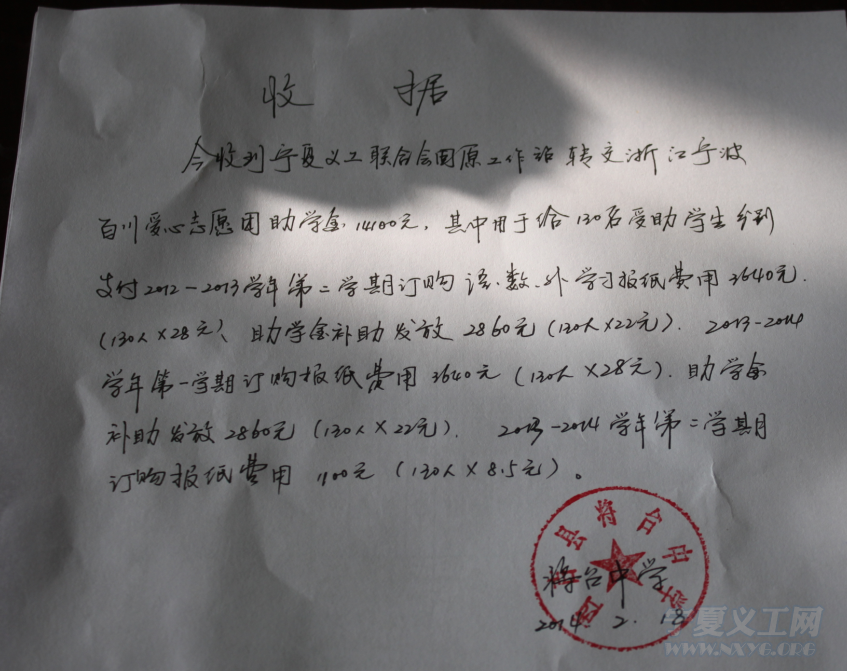 收 据
今收到宁夏义工联合会固原工作站转交浙江宁波
百川爱心志愿团助学金14100元，其中用于给130名受助学生分别
支付2012-2013学年第二学期订购语、数、外学习报纸费用3640元.
(130人×28元)、助学金补助发放2860元(130人×22元). 2013-2014
学年第一学期订购报纸费用3640元(130人×28元). 助学金
补助发放2860元(130人×22元). 2013-2014学年第二学期
订购报纸费用1100元(130人×8.5元)。
县将台中学
将台中学
2014. 2. 18
宁夏义工网
WWW.NXYG.ORG